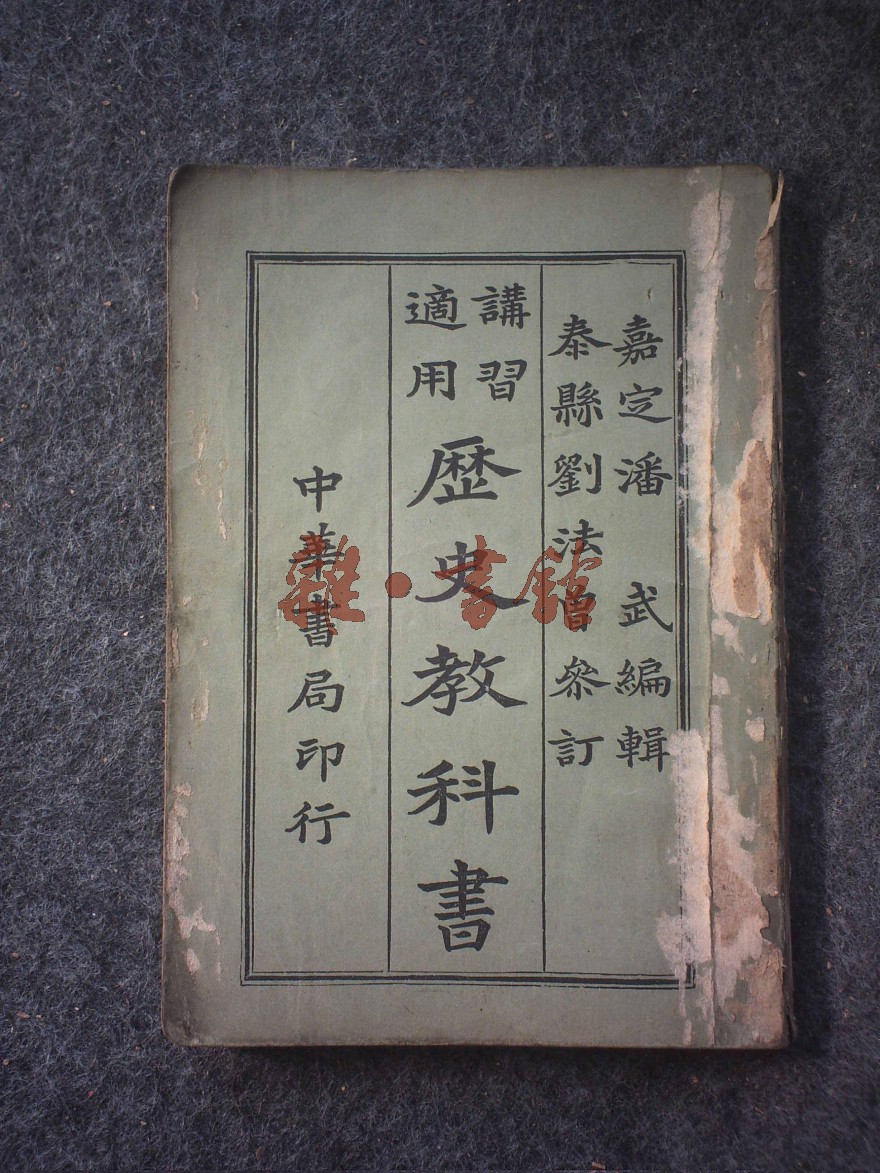 嘉定潘 武編輯
泰縣劉法曾參訂
講習
適用
歷史教科書
中華書局印行
雜·書館